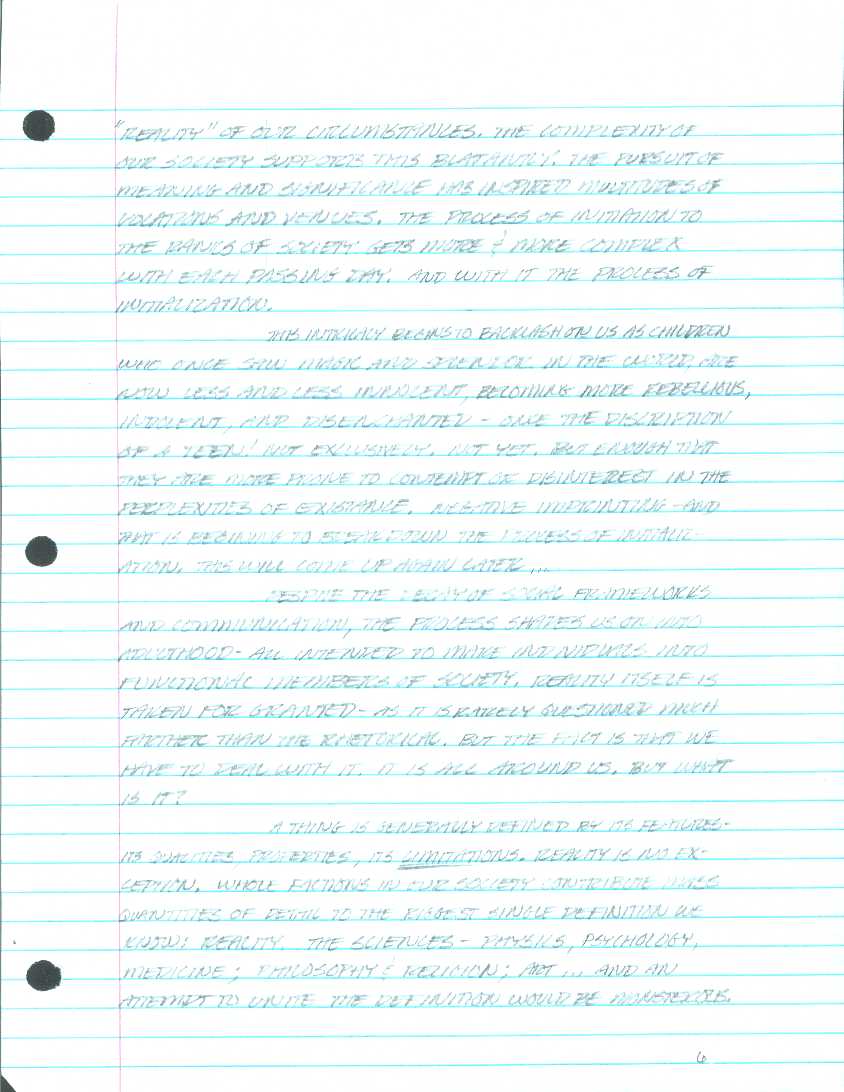 "REALITY" OF OUR CIRCUMSTANCES. THE COMPLEXITY OF
OUR SOCIETY SUPPORTS THIS BLATANTLY. THE PURSUIT OF
MEANING AND SIGNIFICANCE HAS INSPIRED MULTITUDES OF
VOCATIONS AND VENUES. THE PROCESS OF INITIATION TO
THE RANKS OF SOCIETY GETS MORE & MORE COMPLEX
WITH EACH PASSING DAY. AND WITH IT THE PROCESS OF
INITIALIZATION.
THIS INTRICACY BEGINS TO BACKLASH ON US AS CHILDREN
WHO ONCE SAW MAGIC AND SPLENDOR IN THE WORLD, ARE
NOW LESS AND LESS INNOCENT, BECOMING MORE REBELLIOUS,
INDOLENT, AND DISENCHANTED - ONCE THE DISCRIPTION
OF A TEEN! NOT EXCLUSIVELY. NOT YET. BUT ENOUGH THAT
THEY ARE MORE PRONE TO CONTEMPT OR DISINTEREST IN THE
PERPLEXITIES OF EXISTANCE. NEGATIVE IMPRINTING - AND
THAT IS BEGINING TO BREAK DOWN THE PROCESS OF INITALIZ-
ATION. THIS WILL COME UP AGAIN LATER...
DESPITE THE DECAY OF SOCIAL FRAMEWORKS
AND COMMUNICATION, THE PROCESS SHAPES US ON INTO
ADULTHOOD - ALL INTENDED TO MAKE INDIVIDUALS INTO
FUNCTIONAL MEMBERS OF SOCIETY. REALITY ITSELF IS
TAKEN FOR GRANTED - AS IT IS RARELY QUESTIONED MUCH
FARTHER THAN THE RHETORICAL. BUT THE FACT IS THAT WE
HAVE TO DEAL WITH IT. IT IS ALL AROUND US. BUT WHAT
IS IT?
A THING IS GENERALLY DEFINED BY ITS FEATURES -
ITS QUALITIES, PROPERTIES, ITS LIMITATIONS. REALITY IS NO EX-
CEPTION. WHOLE FACTIONS IN OUR SOCIETY CONTRIBUTE MASS
QUANTITIES OF DETAIL TO THE BIGGEST SINGLE DEFINITION WE
KNOW: REALITY. THE SCIENCES - PHYSICS, PSYCHOLOGY,
MEDICINE; PHILOSOPHY & RELIGION; ART... AND AN
ATTEMPT TO UNITE THE DEFINITION WOULD BE MONSTEROUS.
6